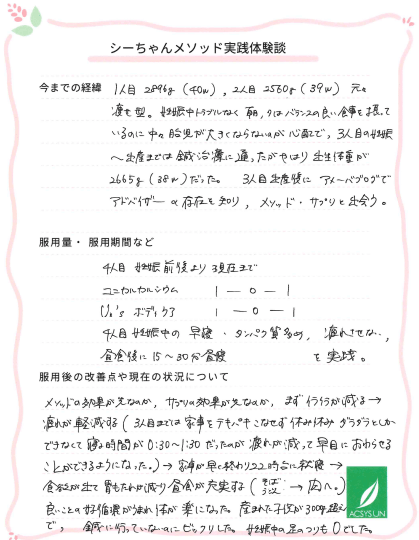 シーちゃんメソッド実践体験談
今までの経緯 1人目 2896g (40w) , 2人目 2560g (39w) 元々
凄も型。妊娠中トラブルなく 毎, タはバランスの良い食事を摂って
いるのに中々胎児が大きくならないのが心配で, 3人目の妊娠
〜出産までは鍼治療に通ったがやはり出生体重が
2665g (38w) だった。 3人目出産後に アメーバブログで
アドバイザー の存在を知り , メソッド・サプリと出会う。
服用量・服用期間など
4人目 妊娠前後より 現在まで
ユニカルカルシウム 1 — 0 — 1
ボディケア 1 — 0 — 1
4人目 妊娠中の 早寝 ・ タンパク質多め, 疲れさせない,
昼食後に 15〜30分昼寝 を実践。
服用後の改善点や現在の状況について
メソッドの効果が先なのか, サプリの効果が先なのか, まずイライラが減る→
疲れが軽減する ( 3人目までは家事をテキパキこなせず休み休みダラダラとしか
できなくて寝る時間が0:30〜1:30だったのが疲れが減って早目におわらせる
ことができるようになった。) → 家事が早く終わり22時台に就寝 →
食欲が出て胃もたれが減り昼食が充実する ( そば うどん → 肉へ。)
良いことの好循環がうまれ体が楽になった。産まれた子供が3004g
で, 鍼に行っていないのにビックリした。妊娠中の足のつりも0でした。
ACSYSUN